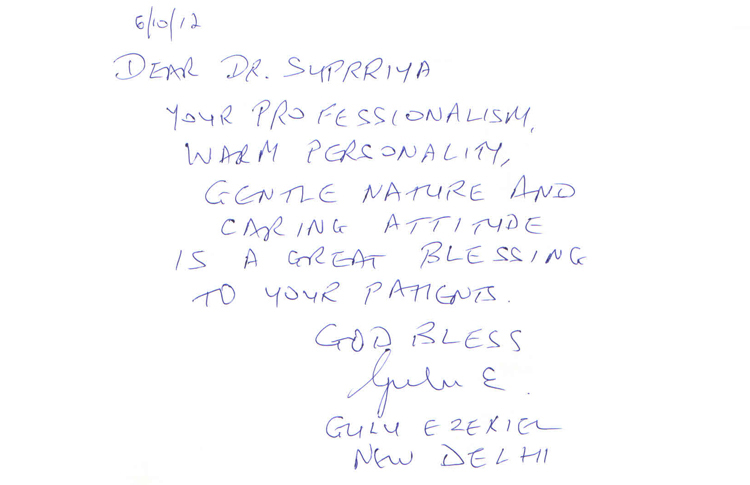 6/10/12
DEAR DR. SUPRRIYA
YOUR PROFESSIONALISM,
WARM PERSONALITY,
GENTLE NATURE AND
CARING ATTITUDE
IS A GREAT BLESSING
TO YOUR PATIENTS.
GOD BLESS
Gulu E.
GULU EZEKIEL
NEW DELHI